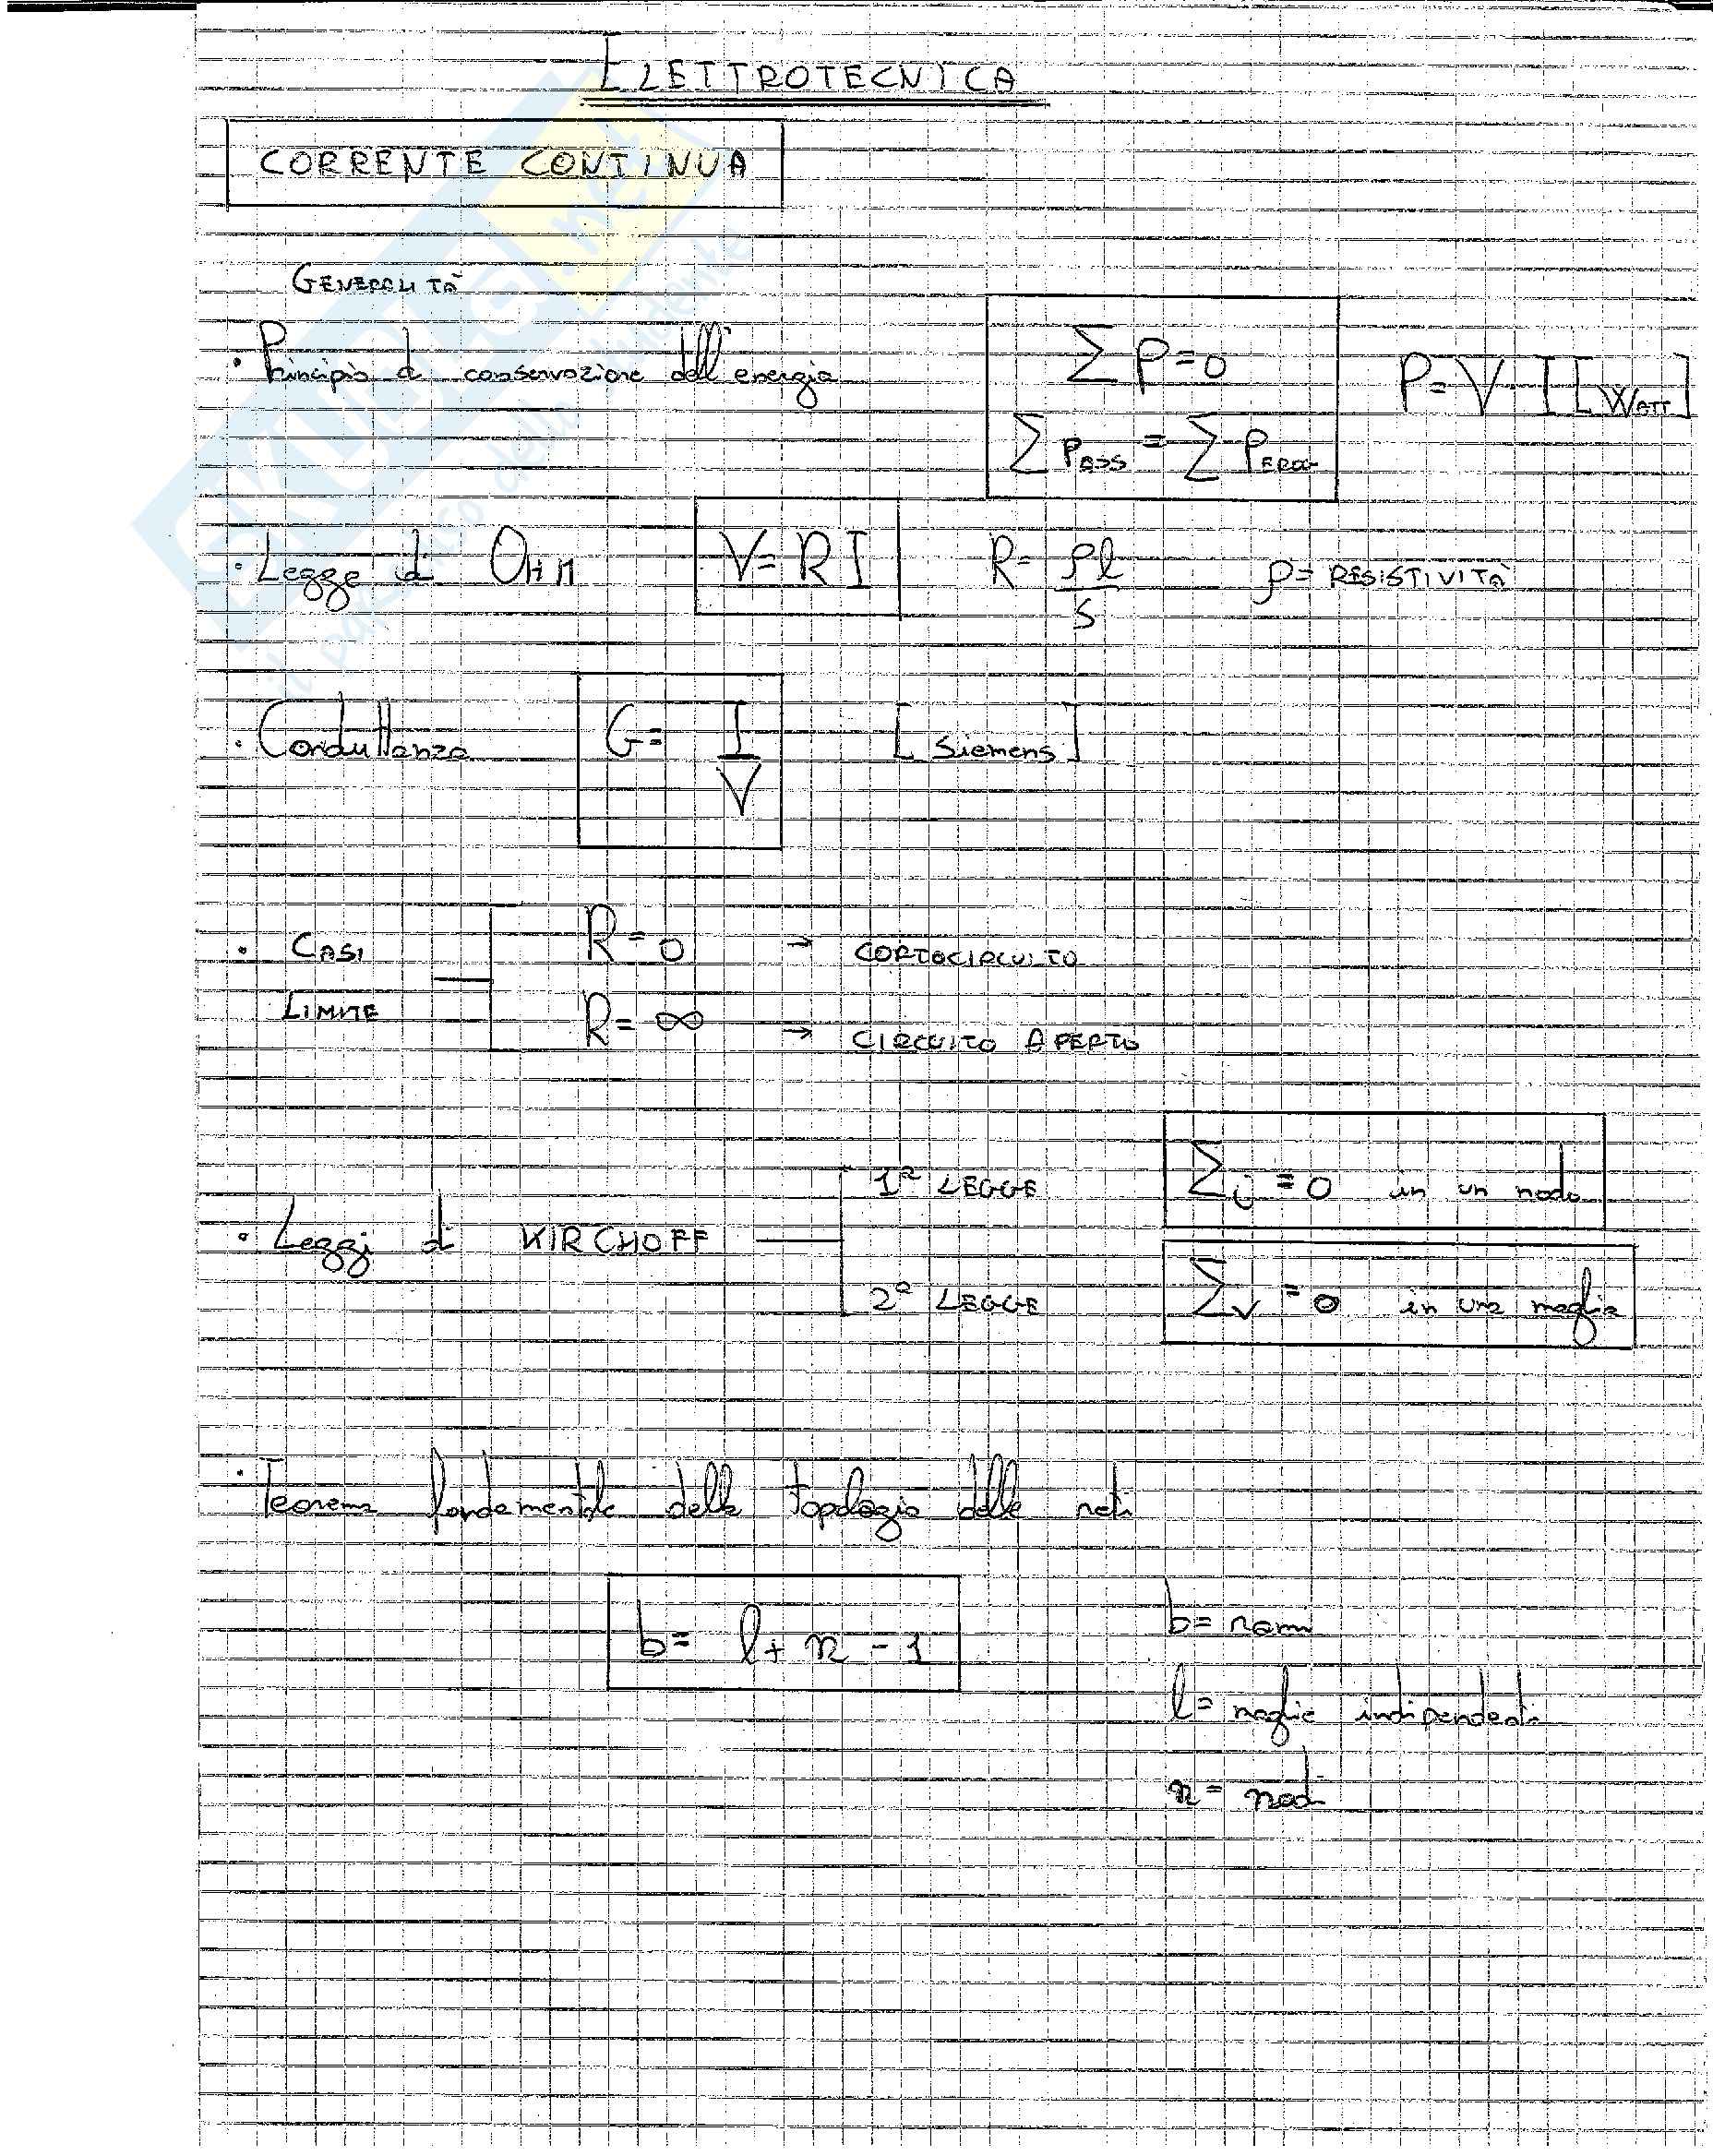 ELETTROTECNICA
CORRENTE CONTINUA
GENERALITÀ
• Principio di conservazione dell'energia ∑ P = 0 P = V · I [WATT]
∑ PASS = ∑ PEROG
• Legge di OHM V = R I R = ρl / S ρ = RESISTIVITÀ
• Conduttanza G = I / V [Siemens]
• CASI LIMITE R = 0 → CORTOCIRCUITO
R = ∞ → CIRCUITO APERTO
• Leggi di KIRCHOFF 1ª LEGGE ∑i = 0 in un nodo
2ª LEGGE ∑v = 0 in una maglia
• Teorema fondamentale della topologia delle reti
b = l + n - 1
b = rami
l = maglie indipendenti
n = nodi
SKUOLA.net
il paradiso dello studente